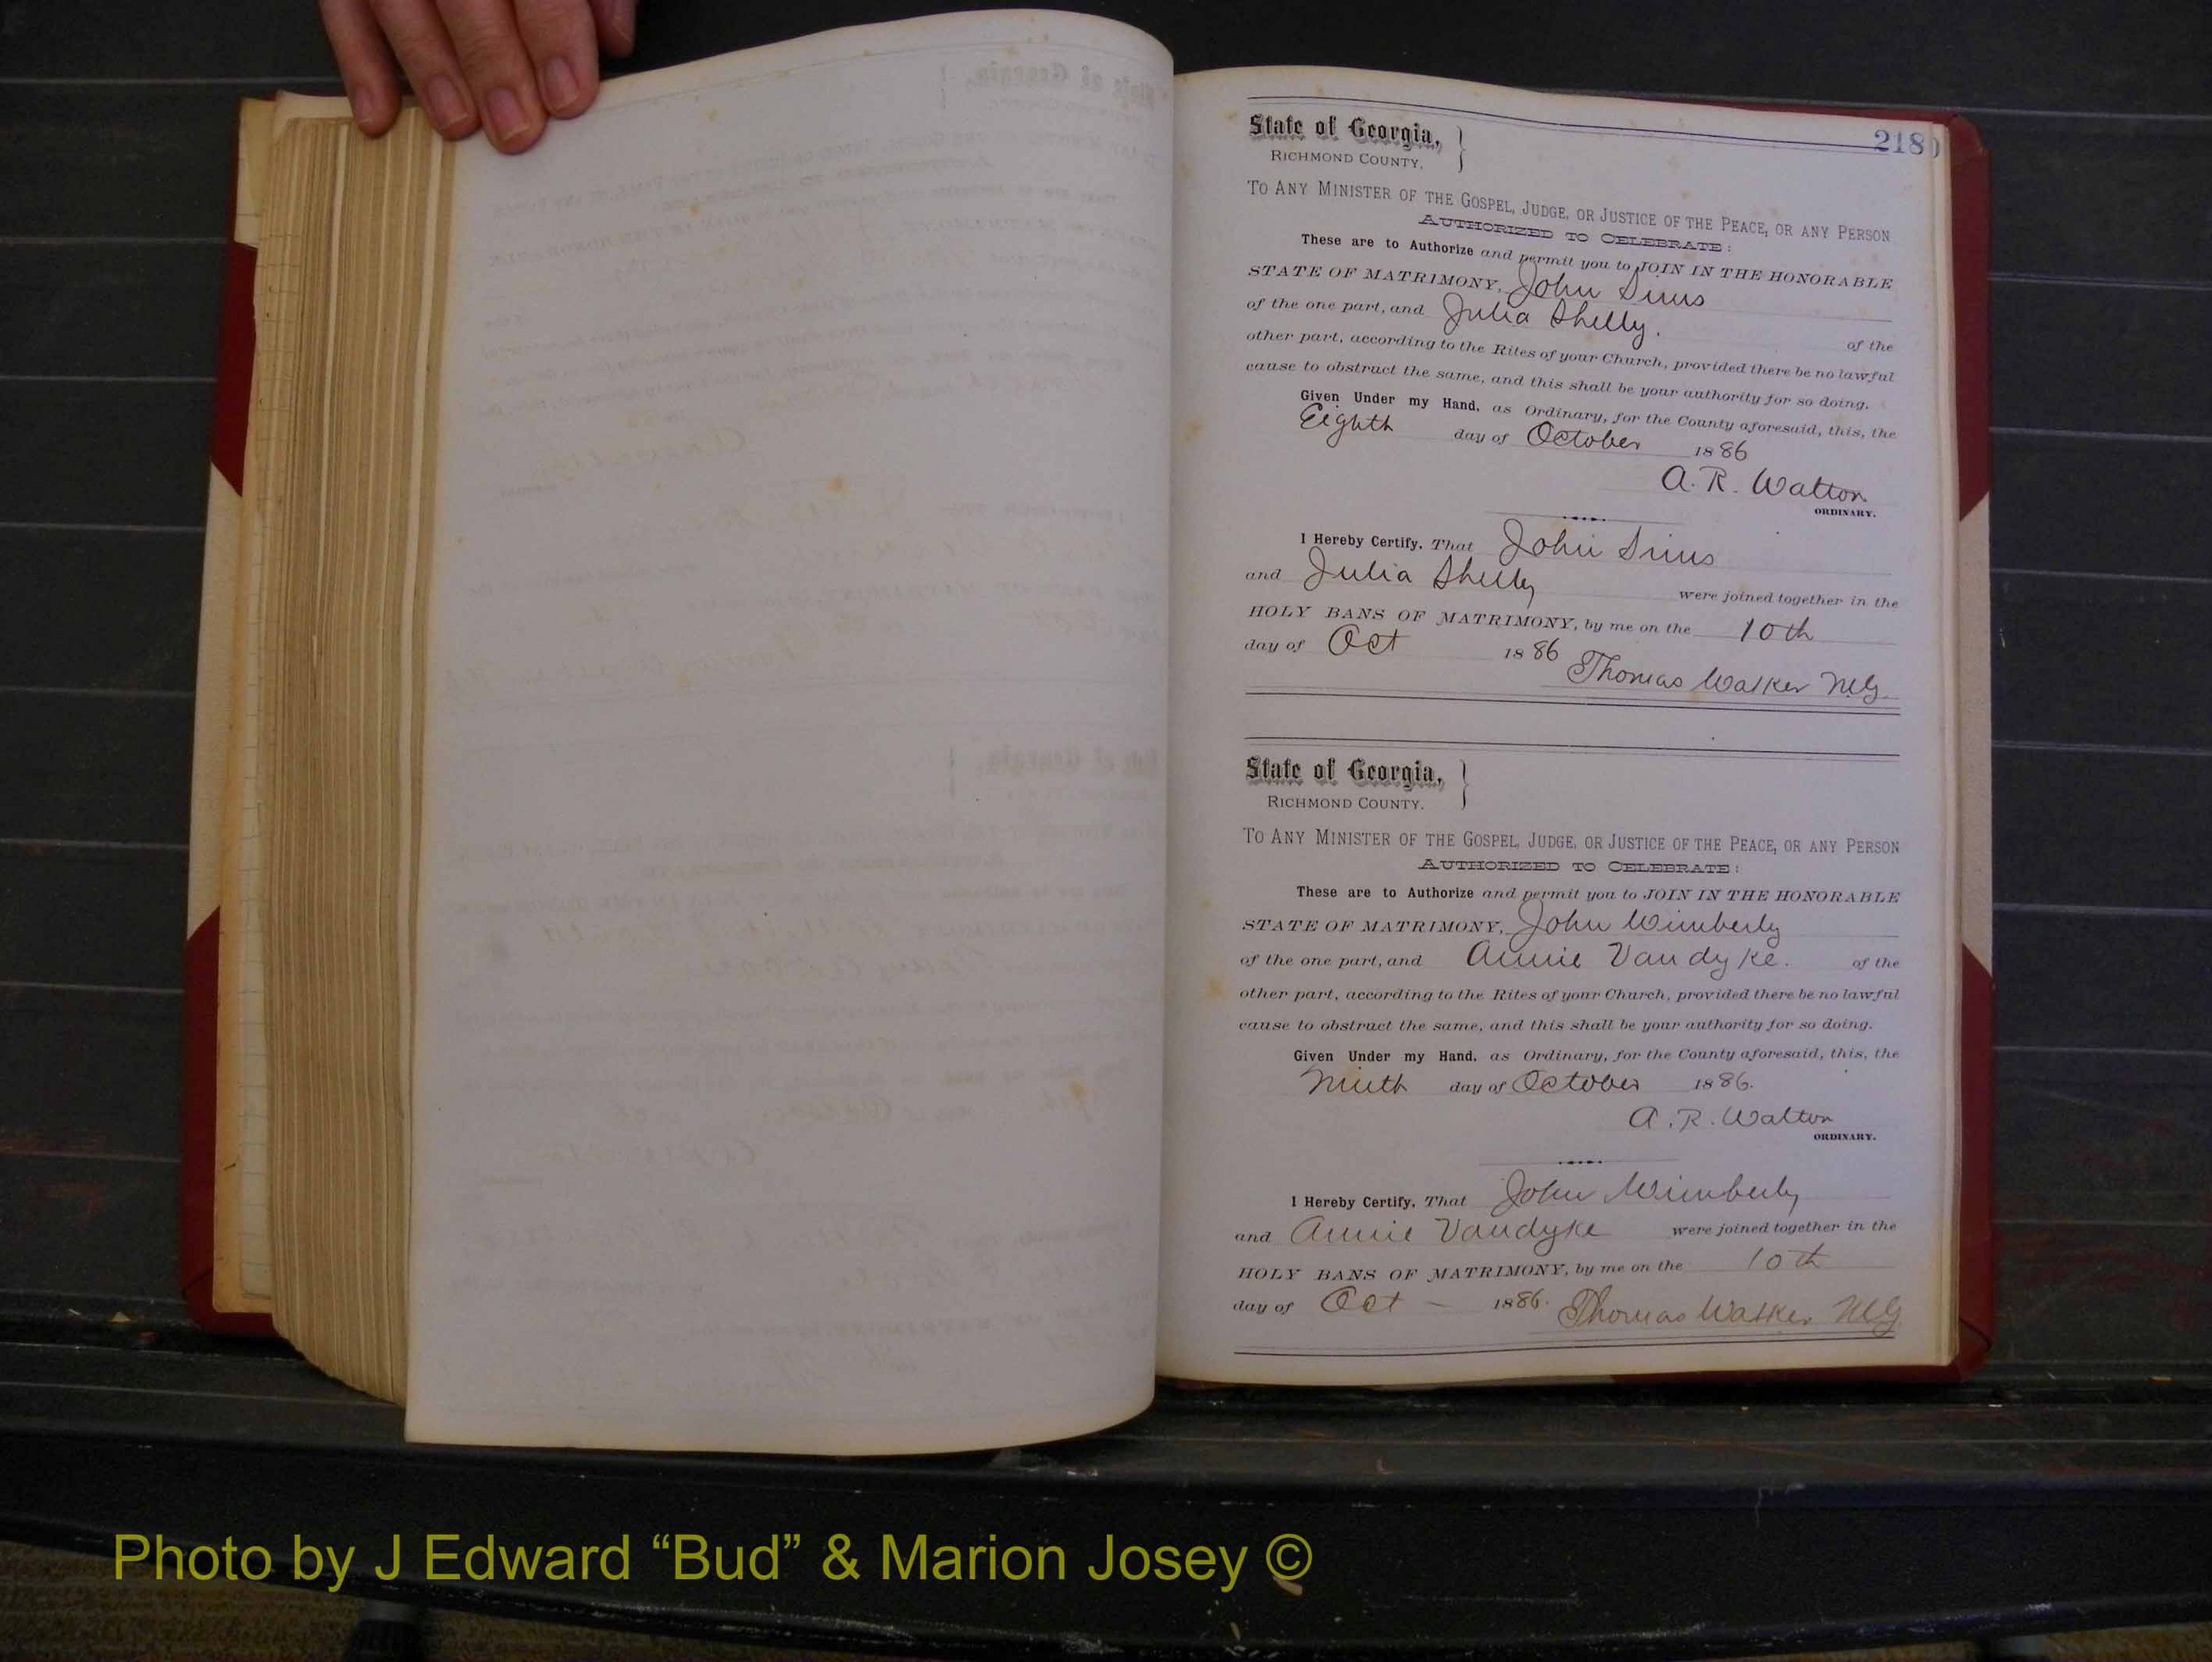 218
State of Georgia,
RICHMOND COUNTY.
TO ANY MINISTER OF THE GOSPEL, JUDGE, OR JUSTICE OF THE PEACE, OR ANY PERSON
AUTHORIZED TO CELEBRATE:
These are to Authorize and permit you to JOIN IN THE HONORABLE
STATE OF MATRIMONY, John Sims
of the one part, and Julia Shelly. of the
other part, according to the Rites of your Church, provided there be no lawful
cause to obstruct the same, and this shall be your authority for so doing.
Given Under my Hand, as Ordinary, for the County aforesaid, this, the
Eighth day of October 1886
A. R. Walton
ORDINARY.
I Hereby Certify, That John Sims
and Julia Shelly were joined together in the
HOLY BANS OF MATRIMONY, by me on the 10th
day of Oct 1886 Thomas Walker M.G.
State of Georgia,
RICHMOND COUNTY.
TO ANY MINISTER OF THE GOSPEL, JUDGE, OR JUSTICE OF THE PEACE, OR ANY PERSON
AUTHORIZED TO CELEBRATE:
These are to Authorize and permit you to JOIN IN THE HONORABLE
STATE OF MATRIMONY, John Wimberly
of the one part, and Annie Vandyke. of the
other part, according to the Rites of your Church, provided there be no lawful
cause to obstruct the same, and this shall be your authority for so doing.
Given Under my Hand, as Ordinary, for the County aforesaid, this, the
Ninth day of October 1886.
A. R. Walton
ORDINARY.
I Hereby Certify, That John Wimberly
and Annie Vandyke were joined together in the
HOLY BANS OF MATRIMONY, by me on the 10th
day of Oct — 1886. Thomas Walker MG.
Photo by J Edward “Bud” & Marion Josey ©